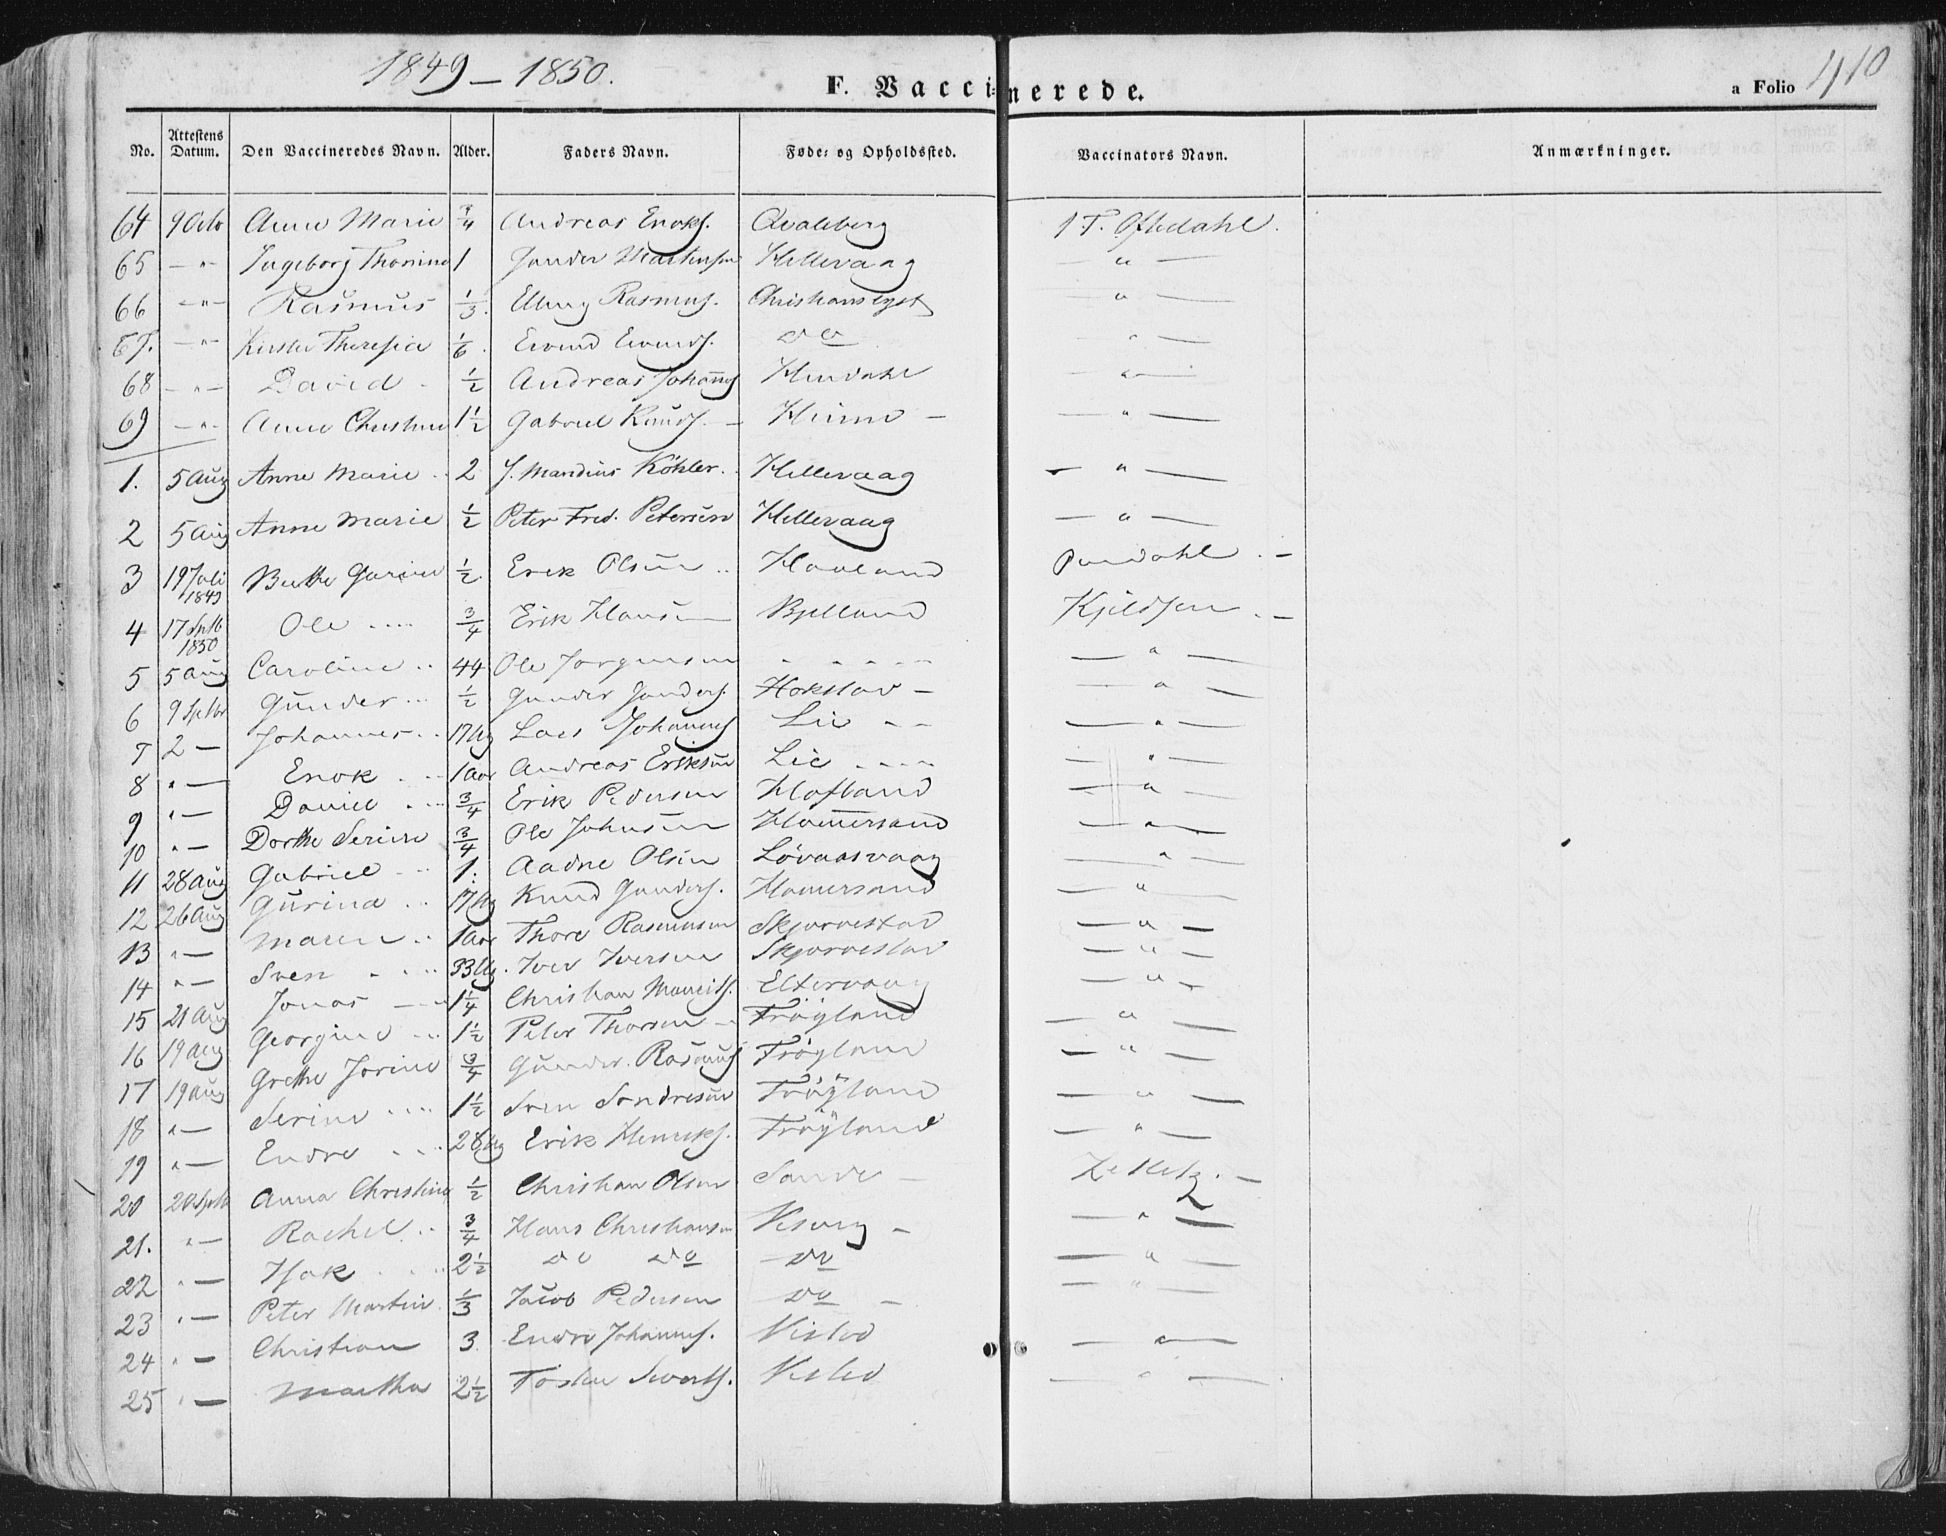 1849 – 1850.
F. Vaccinerede.
a Folio 410
No. Attestens Datum. Den Vaccineredes Navn. Alder. Faders Navn. Føde- og Opholdssted. Vaccinators Navn. Anmærkninger.
64 9 Octb Anne Marie 3/4 Andreas Enoks. Qvaleberg T. Oftedahl.
65 – " – Ingeborg Thorine 1 Gunder Martensen Hillevaag – " –
66 – " – Rasmus 1/3. Elling Rasmus. Christianslyst – " –
67. – " – Kirstie Theresia 1/6. Eivind Eivinds. do – " –
68 – " – David 1/2 Andreas Johann – " –
69 – " – Anne Christine 1 1/2 Gabriel Knuds. – – " –
1. 5 Aug Anne Marie .. 2 J. Mandius Köhler. Hillevaag – " –
2 5 Aug Anne Marie 1/2 Peter Fred. Petersen Hillevaag – " –
3 19 Juli 1849 Berthe Gurine 1/2 Erik Olsen .. Haaland . –
4 17 Sptb 1850 Ole .... 3/4 Erik Hansen Bjelland Kjeldsen . –
5 5 Aug Caroline .. 44 Ole Jørgensen " " " " " – " –
6 9 Sptbr Gunder ... 1/2 Gunder Gunders. – – " –
7 2 – Johannes .. 17 Ug Lars Johannes Lie – – – " –
8 " – Enok ... 1 Aar Andreas Eriksen Lie .... – " –
9 " – Daniel ... 3/4 Erik Pedersen Hafland – " –
10 " – Dorthe Serine 3/4 Ole Johnsen Hammersand – " –
11 28 Aug Gabriel ... 1. Aadne Olsen Løvaasvaag – " –
12 26 Aug Gurina .. 17 Ug Knud Gunders. Hamersand – " –
13 " – Maren .. 1 Aar Thore Rasmussen Skjørvestad – " –
14 " – Sven .... 33 Ug. Iver Iversen Skjørvestad – " –
15 21 Aug Jonas – 1 1/4 Christian Eltervaag – " –
16 19 Aug Georgine ... 1 1/2 Peter Thorsen – Frøyland – " –
17 19 Aug Grethe Jorine 3/4 Gunder Rasmus Frøyland – " –
18 " – Serine .... 1 1/2 Sven Sondresen Frøyland – " –
19 " – Endre ... 28 Ug Erik Henriks. Frøyland – " –
20 20 Sptb Anna Christina 1/2 Christian Olsen Sande – Zetlitz. –
21. " – Rachel .. 3/4 Hans Christiansen – – " –
22 " – Isak ... 2 1/2 do do do – " –
23 " – Peter Martin 1/3 Jacob Pedersen do – – " –
24 " – Christian 3. Endre Johannes. Visted – " –
25 " – Martha 2 1/2 Siverts. Visted – " –